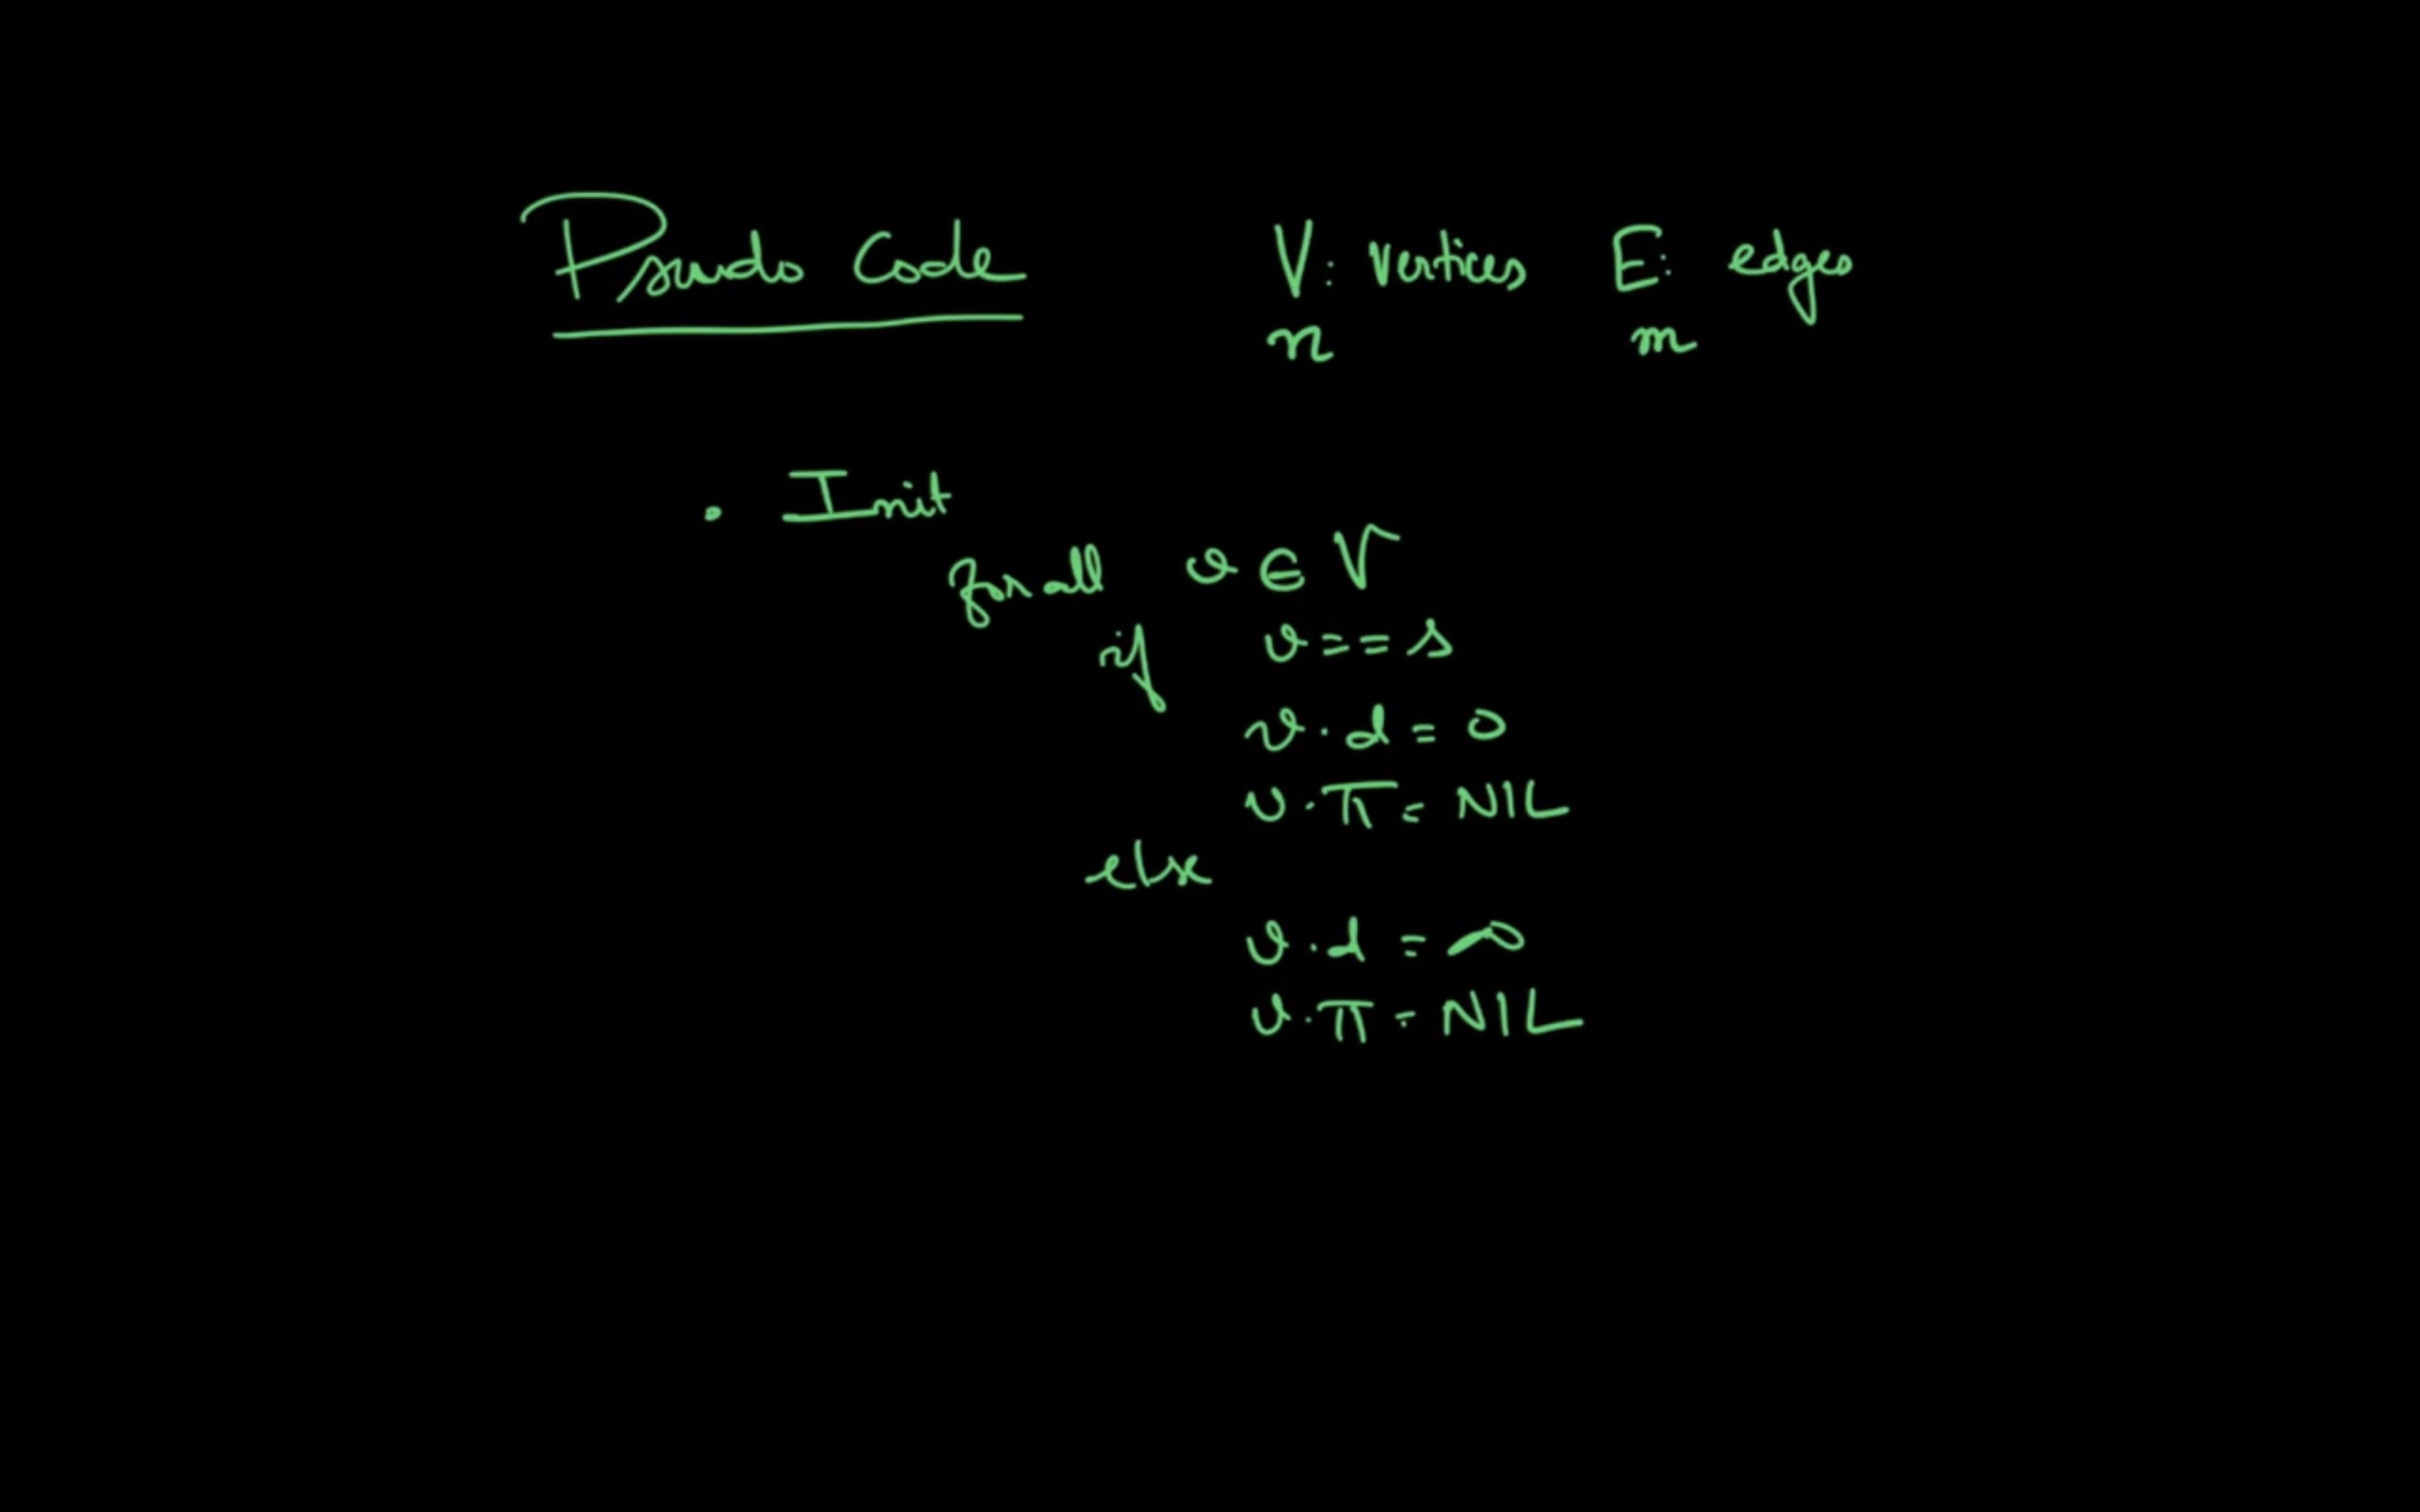 Pseudo Code V: Vertices E: edges
n m
• Init
for all v ∈ V
if v == s
v.d = 0
v.π = NIL
else
v.d = ∞
v.π = NIL